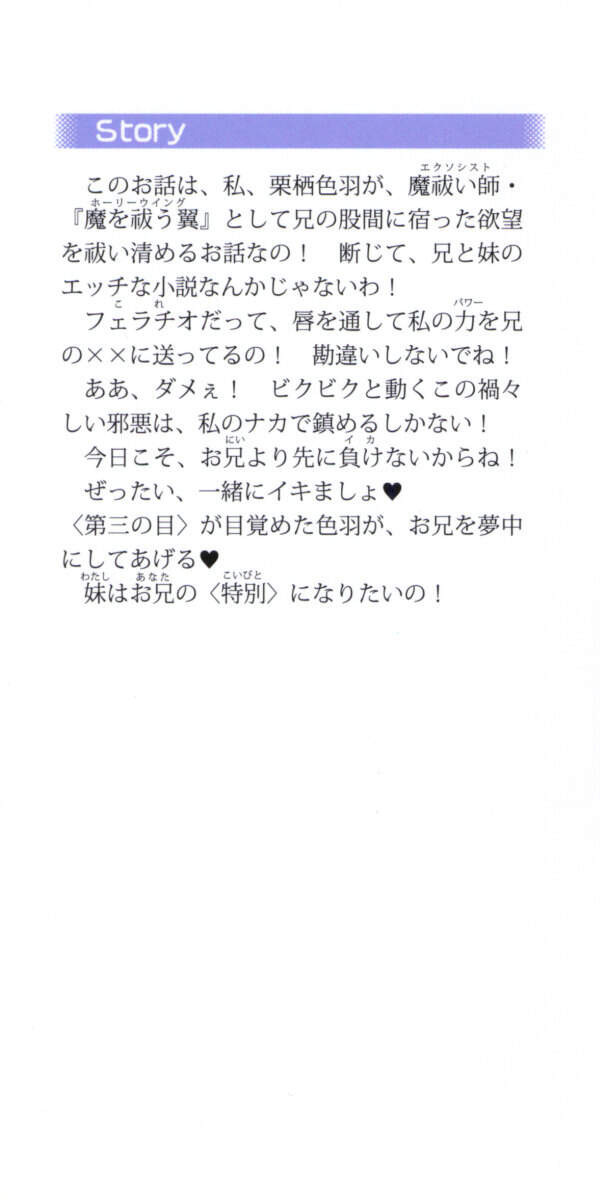 Story
エクソシスト
このお話は、私、栗栖色羽が、魔祓い師・
ホーリーウイング
『魔を祓う翼』として兄の股間に宿った欲望
を祓い清めるお話なの！　断じて、兄と妹の
エッチな小説なんかじゃないわ！
これ　パワー
フェラチオだって、唇を通して私の力を兄
の××に送ってるの！　勘違いしないでね！
ああ、ダメぇ！　ビクビクと動くこの禍々
しい邪悪は、私のナカで鎮めるしかない！
にい　イカ
今日こそ、お兄より先に負けないからね！
ぜったい、一緒にイキましょ♥
〈第三の目〉が目覚めた色羽が、お兄を夢中
にしてあげる♥
わたし　あなた　こいびと
妹はお兄の〈特別〉になりたいの！